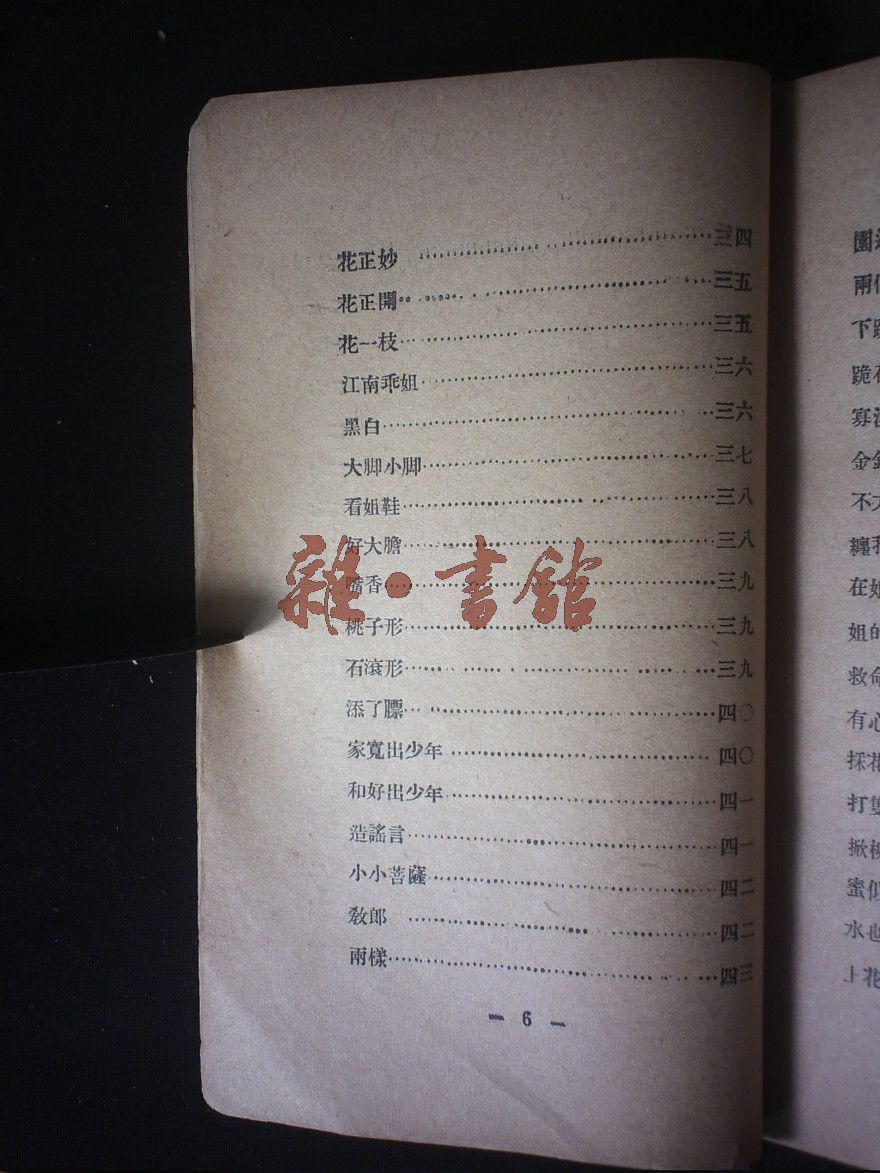 花正妙……三四
花正開……三五
花一枝……三五
江南乖姐……三六
黑白……三六
大脚小脚……三七
看姐鞋……三八
好大膽……三八
嘴香……三九
桃子形……三九
石滾形……三九
添了膘……四〇
家寬出少年……四〇
和好出少年……四一
造謠言……四一
小小菩薩……四二
教郎……四二
兩樣……四三
— 6 —
雜·書館
園
兩
下
跪
寡
金
不
纏
在
姐的
救命
有心
採花
打雙
掀
蜜似
水也
上花